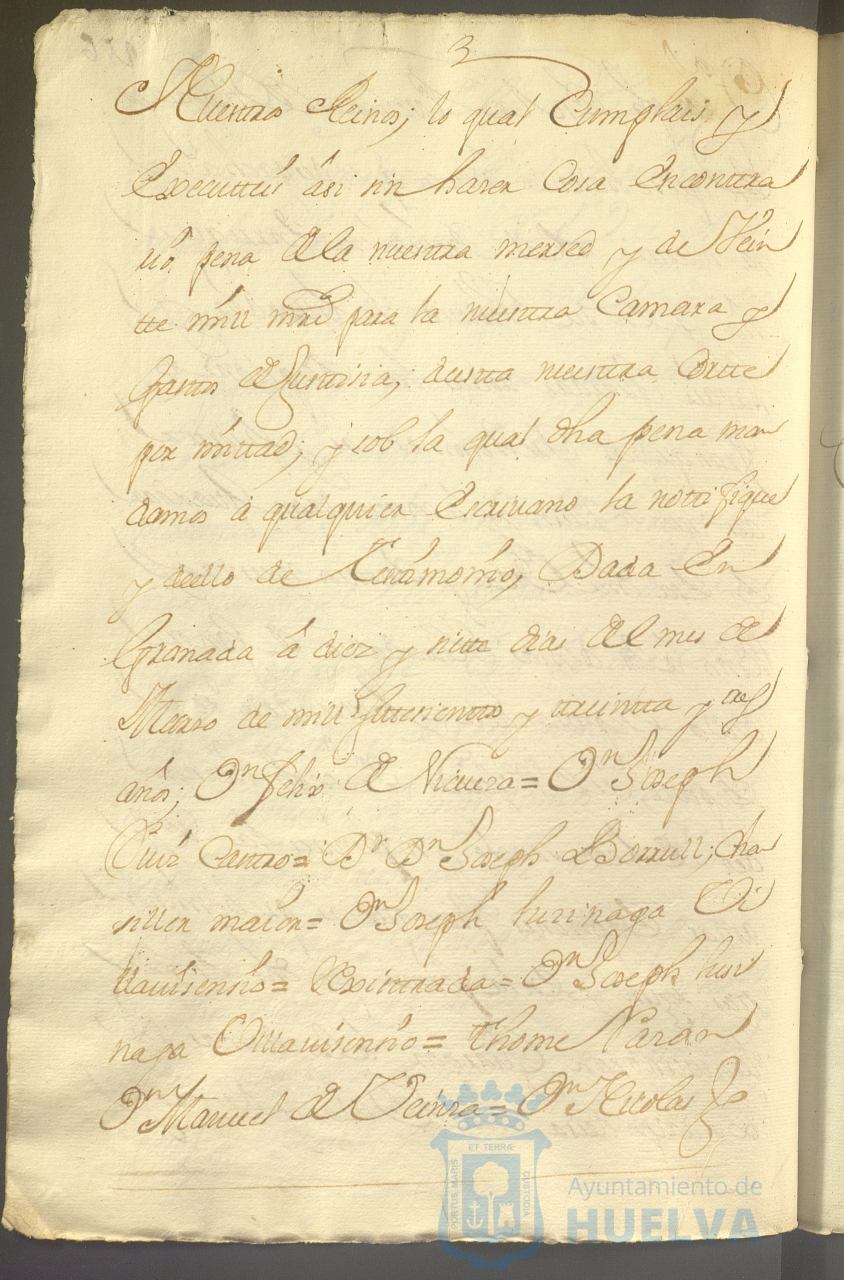 3
Nuestros Reinos; lo qual Cumplais y
Executteis ási sin haser Cosa Encontra
rio pena dela nuestra mersed y de Vein
tte mill mrs para la nuestra Camara y
Gastos de Justisia, de esta nuestra Cortte
por mittad; y sob la qual dha pena man
damos á qualquier Escrivano la nottifique
y deello de Testimonio, Dada En
Granada á diez y siette dias del mes de
Marso de mill settesientos y ttreintta y tres
años; Dn Felix de = Dn Joseph
Ruiz Castro = Dr Dn Joseph Borrull; Cha
siller maior = Dn Joseph Luzinaga Vi
llavisensio = Rexistrada = Dn Joseph Luzi
naga Villavisensio = Thome Naran
Dn Manuel de = Dn Nicolas
ET TERRÆ
PORTUS MARIS
CUSTODIA
Ayuntamiento de
HUELVA